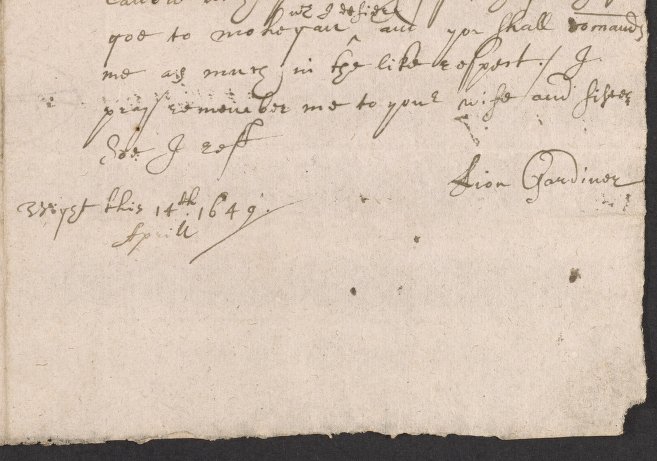 wch I desire
goe to mohegan and you shall comaund
me as much in the like respect ./ I
pray remember me to your wife and sister
Soe I rest
Lion Gardiner
Wight this 14th 1649
Aprill